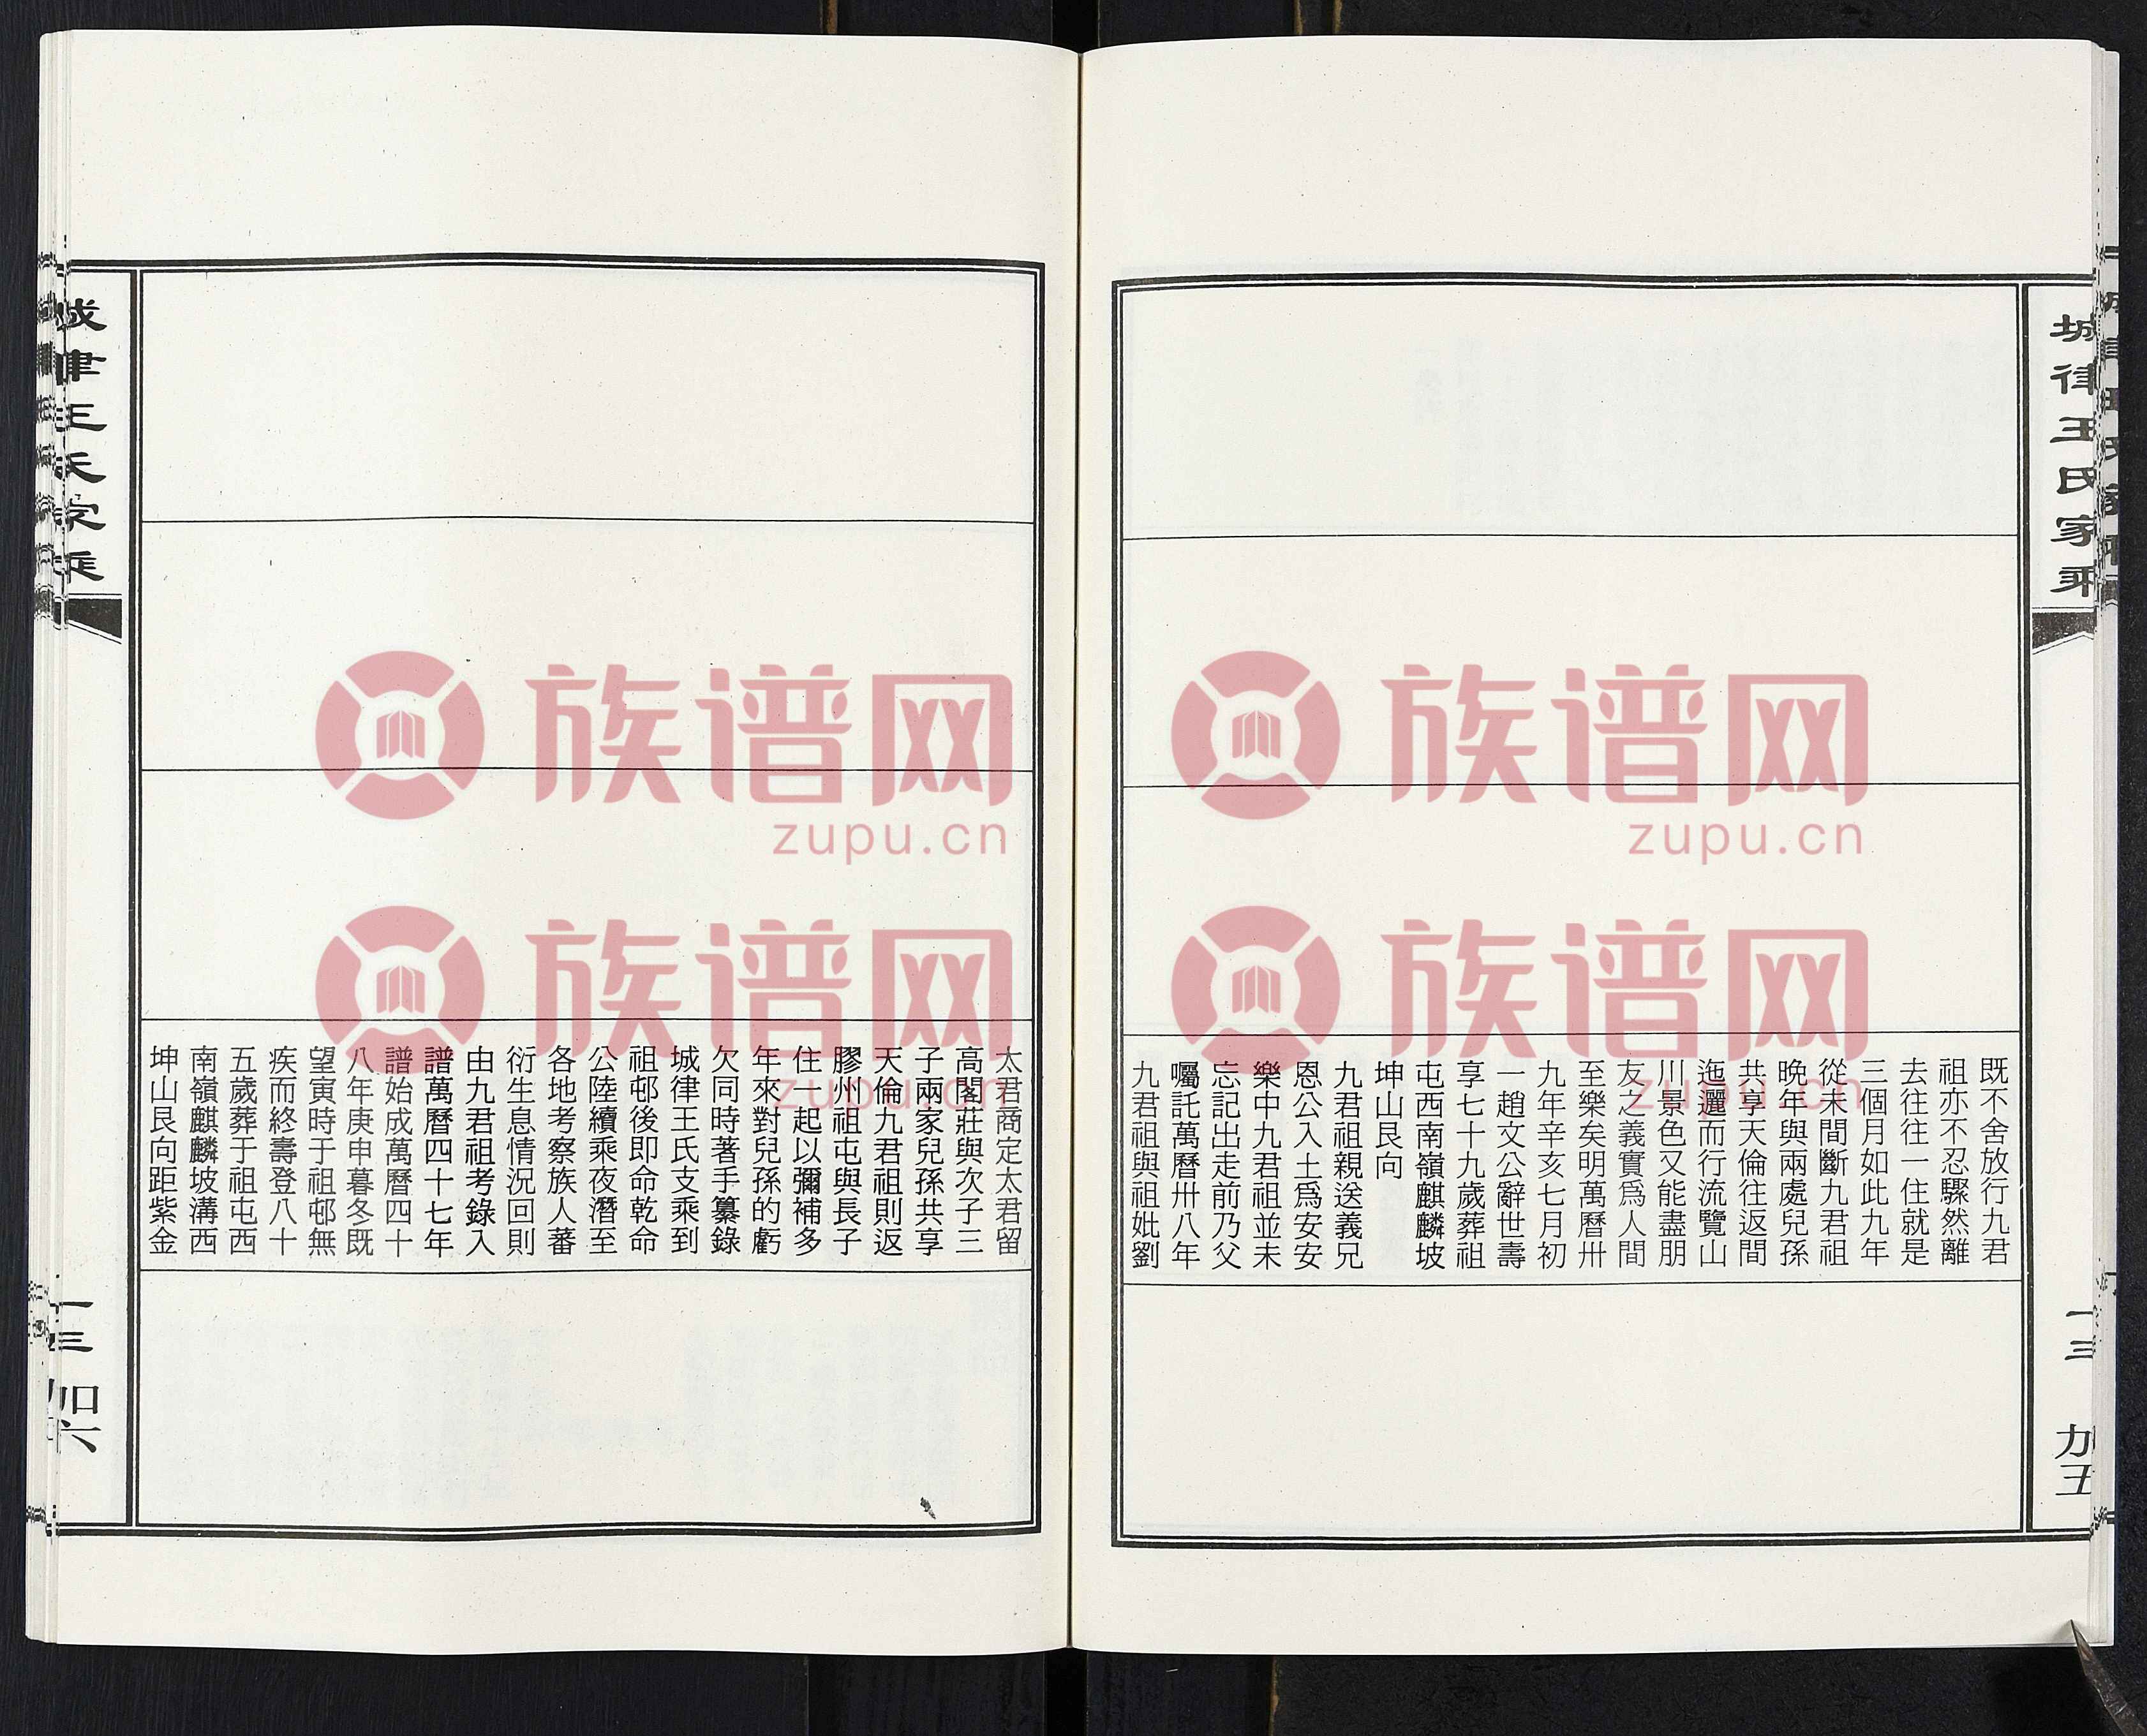 城律王氏家乘
一三
加五
既不舍放行九君
祖亦不忍驟然離
去往往一住就是
三個月如此九年
從未間斷九君祖
晚年與兩處兒孫
共享天倫往返間
迤邐而行流覽山
川景色又能盡朋
友之義實爲人間
至樂矣明萬曆卅
九年辛亥七月初
一趙文公辭世壽
享七十九歲葬祖
屯西南嶺麒麟坡
坤山艮向
九君祖親送義兄
恩公入土爲安安
樂中九君祖並未
忘記出走前乃父
囑託萬曆卅八年
九君祖與祖妣劉
太君商定太君留
高閣莊與次子三
子兩家兒孫共享
天倫九君祖則返
膠州祖屯與長子
住一起以彌補多
年來對兒孫的虧
欠同時著手纂錄
城律王氏支乘到
祖邨後即命乾命
公陸續乘夜潛至
各地考察族人蕃
衍生息情況回則
由九君祖考錄入
譜萬曆四十七年
譜始成萬曆四十
八年庚申暮冬既
望寅時于祖邨無
疾而終壽登八十
五歲葬于祖屯西
南嶺麒麟坡溝西
坤山艮向距紫金
一三
加六
族谱网
zupu.cn
族谱网
zupu.cn
族谱网
zupu.cn
族谱网
zupu.cn